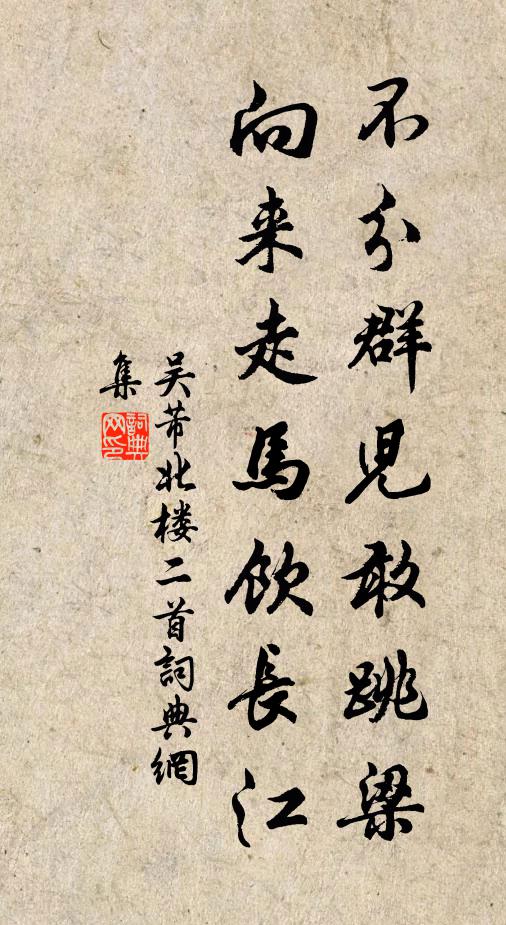 不分群児敢跳梁
向来走馬飲長江
吴芾北楼二首詞典網
集
詞典
网印